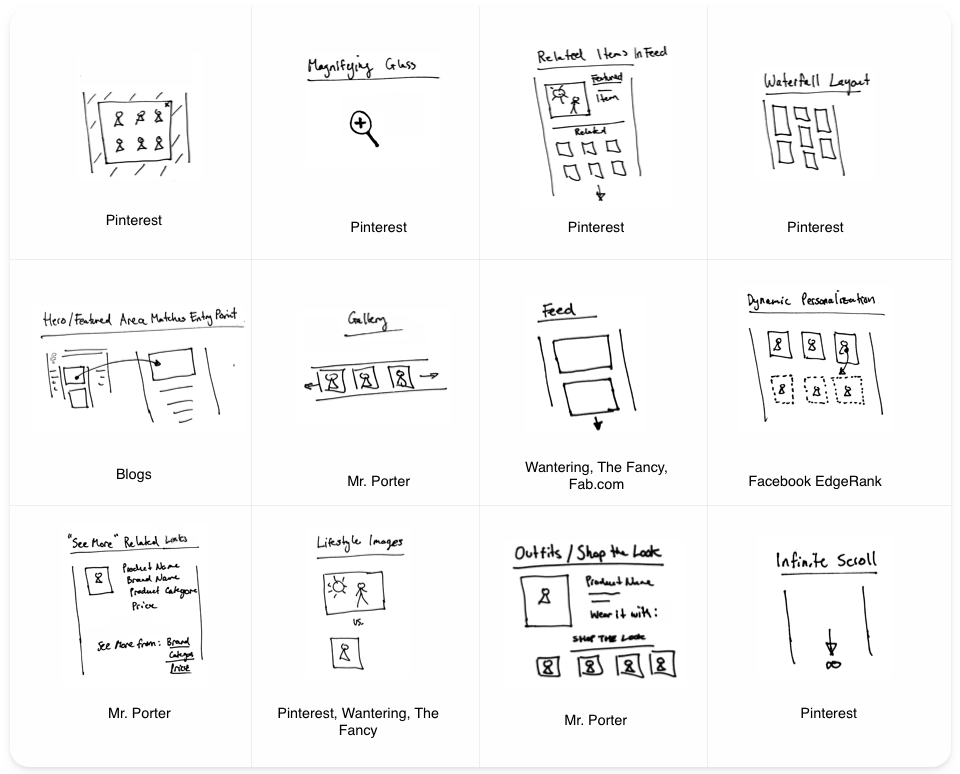 Pinterest
Magnifying Glass
Pinterest
Related Items In Feed
Featured
Item
Related
Pinterest
Waterfall Layout
Pinterest
Hero/Featured Area Matches Entry Point
Blogs
Gallery
Mr. Porter
Feed
Wantering, The Fancy,
Fab.com
Dynamic Personalization
Facebook EdgeRank
"See More" Related Links
Product Name
Brand Name
Product Category
Price
See More from: Brand
Category
Price
Mr. Porter
Lifestyle Images
vs.
Pinterest, Wantering, The
Fancy
Outfits / Shop the Look
Product Name
Wear it with:
SHOP THE LOOK
Mr. Porter
Infinite Scroll
∞
Pinterest